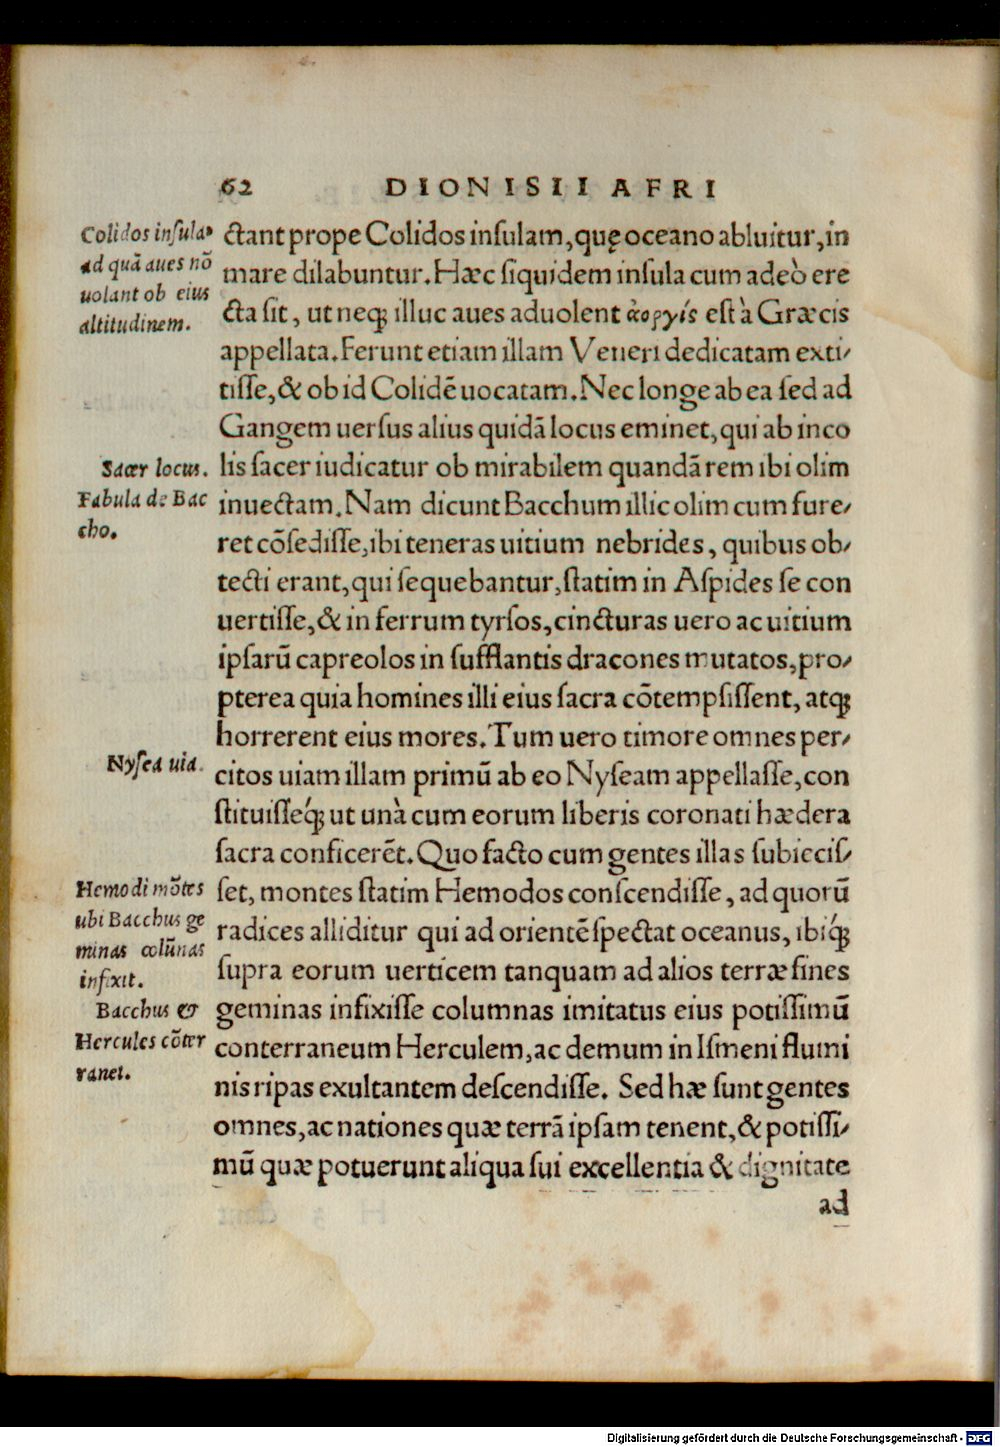 62 DIONISII AFRI
Colidos insula,
ad quā aues nō
uolant ob eius
altitudinem.
Sacer locus.
Fabula de Bac
cho.
Nysea uia.
Hemodi mōtes
ubi Bacchus ge
minas colūnas
infixit.
Bacchus &
Hercules cōter
ranei.
ctant prope Colidos insulam, quę oceano abluitur, in
mare dilabuntur. Hæc siquidem insula cum adeò ere
cta sit, ut neq; illuc aues aduolent ἀοργίς est à Græcis
appellata. Ferunt etiam illam Veneri dedicatam exti/
tisse, & ob id Colidē uocatam. Nec longe ab ea sed ad
Gangem uersus alius quidā locus eminet, qui ab inco
lis sacer iudicatur ob mirabilem quandā rem ibi olim
inuectam. Nam dicunt Bacchum illic olim cum fure/
ret cōsedisse, ibi teneras uitium nebrides, quibus ob/
tecti erant, qui sequebantur, statim in Aspides se con
uertisse, & in ferrum tyrsos, cincturas uero ac uitium
ipsarū capreolos in sufflantis dracones mutatos, pro/
pterea quia homines illi eius sacra cōtempsissent, atq;
horrerent eius mores. Tum uero timore omnes per/
citos uiam illam primū ab eo Nyseam appellasse, con
stituisseq́; ut unà cum eorum liberis coronati hædera
sacra conficerēt. Quo facto cum gentes illas subiecis/
set, montes statim Hemodos conscendisse, ad quorū
radices alliditur qui ad orientē spectat oceanus, ibiq́;
supra eorum uerticem tanquam ad alios terræ fines
geminas infixisse columnas imitatus eius potissimū
conterraneum Herculem, ac demum in Ismeni flumi
nis ripas exultantem descendisse. Sed hæ sunt gentes
omnes, ac nationes quæ terrā ipsam tenent, & potissi/
mū quæ potuerunt aliqua sui excellentia & dignitate
ad
Digitalisierung gefördert durch die Deutsche Forschungsgemeinschaft - DFG